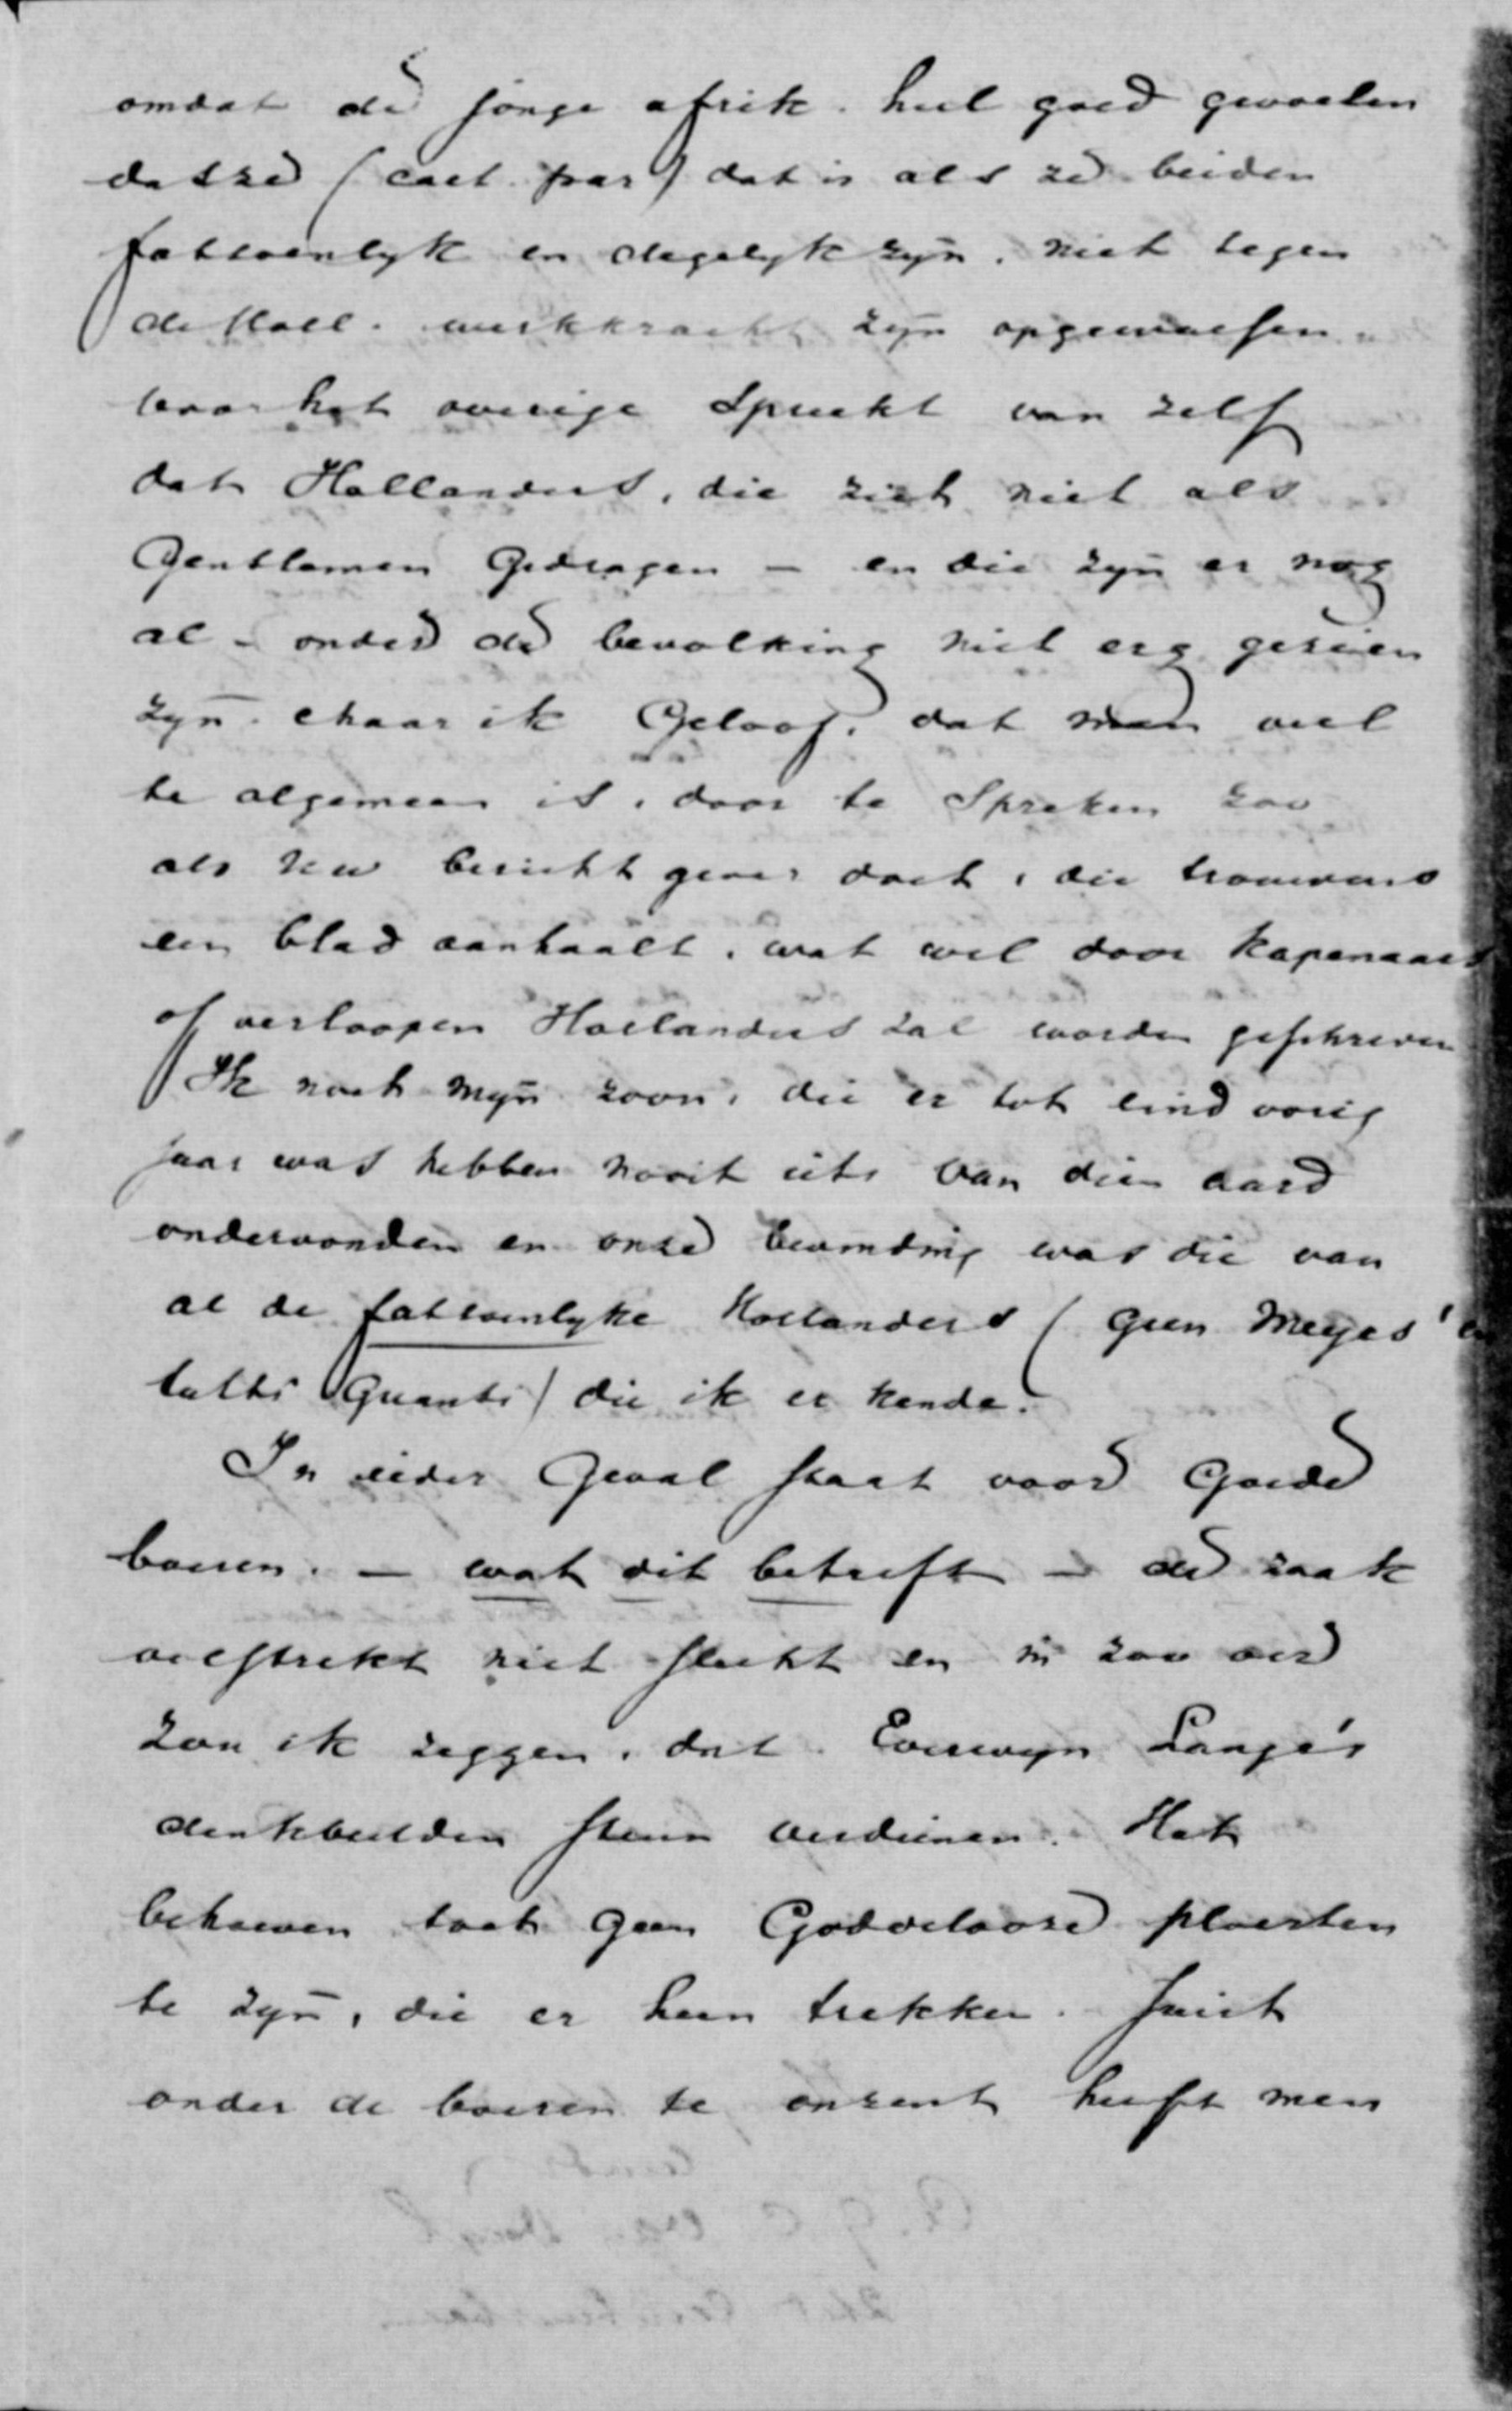 omdat de jonge afrik. heel goed gevoelen
dat ze (caet. par) dat is als ze beiden
fatsoenlyk en degelyk zyn, niet tegen
de Holl. werkkracht zyn opgewassen.
Voor het overige Spreekt van zelf
dat Hollanders, die zich niet als
Gentlemen Gedragen – en die zyn er nog
al – onder de bevolking niet erg gezien
zyn. Maar ik Geloof, dat men veel
te algemeen is, door te Spreken zoo
als Uw berichtgever doet, die trouwens
een blad aanhaalt, wat wel door Kapenaars
of verloopen Hollanders zal worden geschreven
Ik noch myn zoon, die er tot eind vorig
jaar was hebben nooit iets van dien aard
ondervonden en onze bevinding was die van
al de fatsoenlyke Hollanders (Geen Meyers' en
tutti Quanti) die ik er kende.
In ieder Geval staat voor Goede
boeren. – wat dit betreft – de zaak
volstrekt niet slecht en in zoo ver
zou ik zeggen, dat Everwyn Lange's
denkbeelden steun verdienen. Het
behoeven toch geen Goddelooze ploerten
te zyn, die er heen trekken. Juist
onder de boeren te onzent heeft men